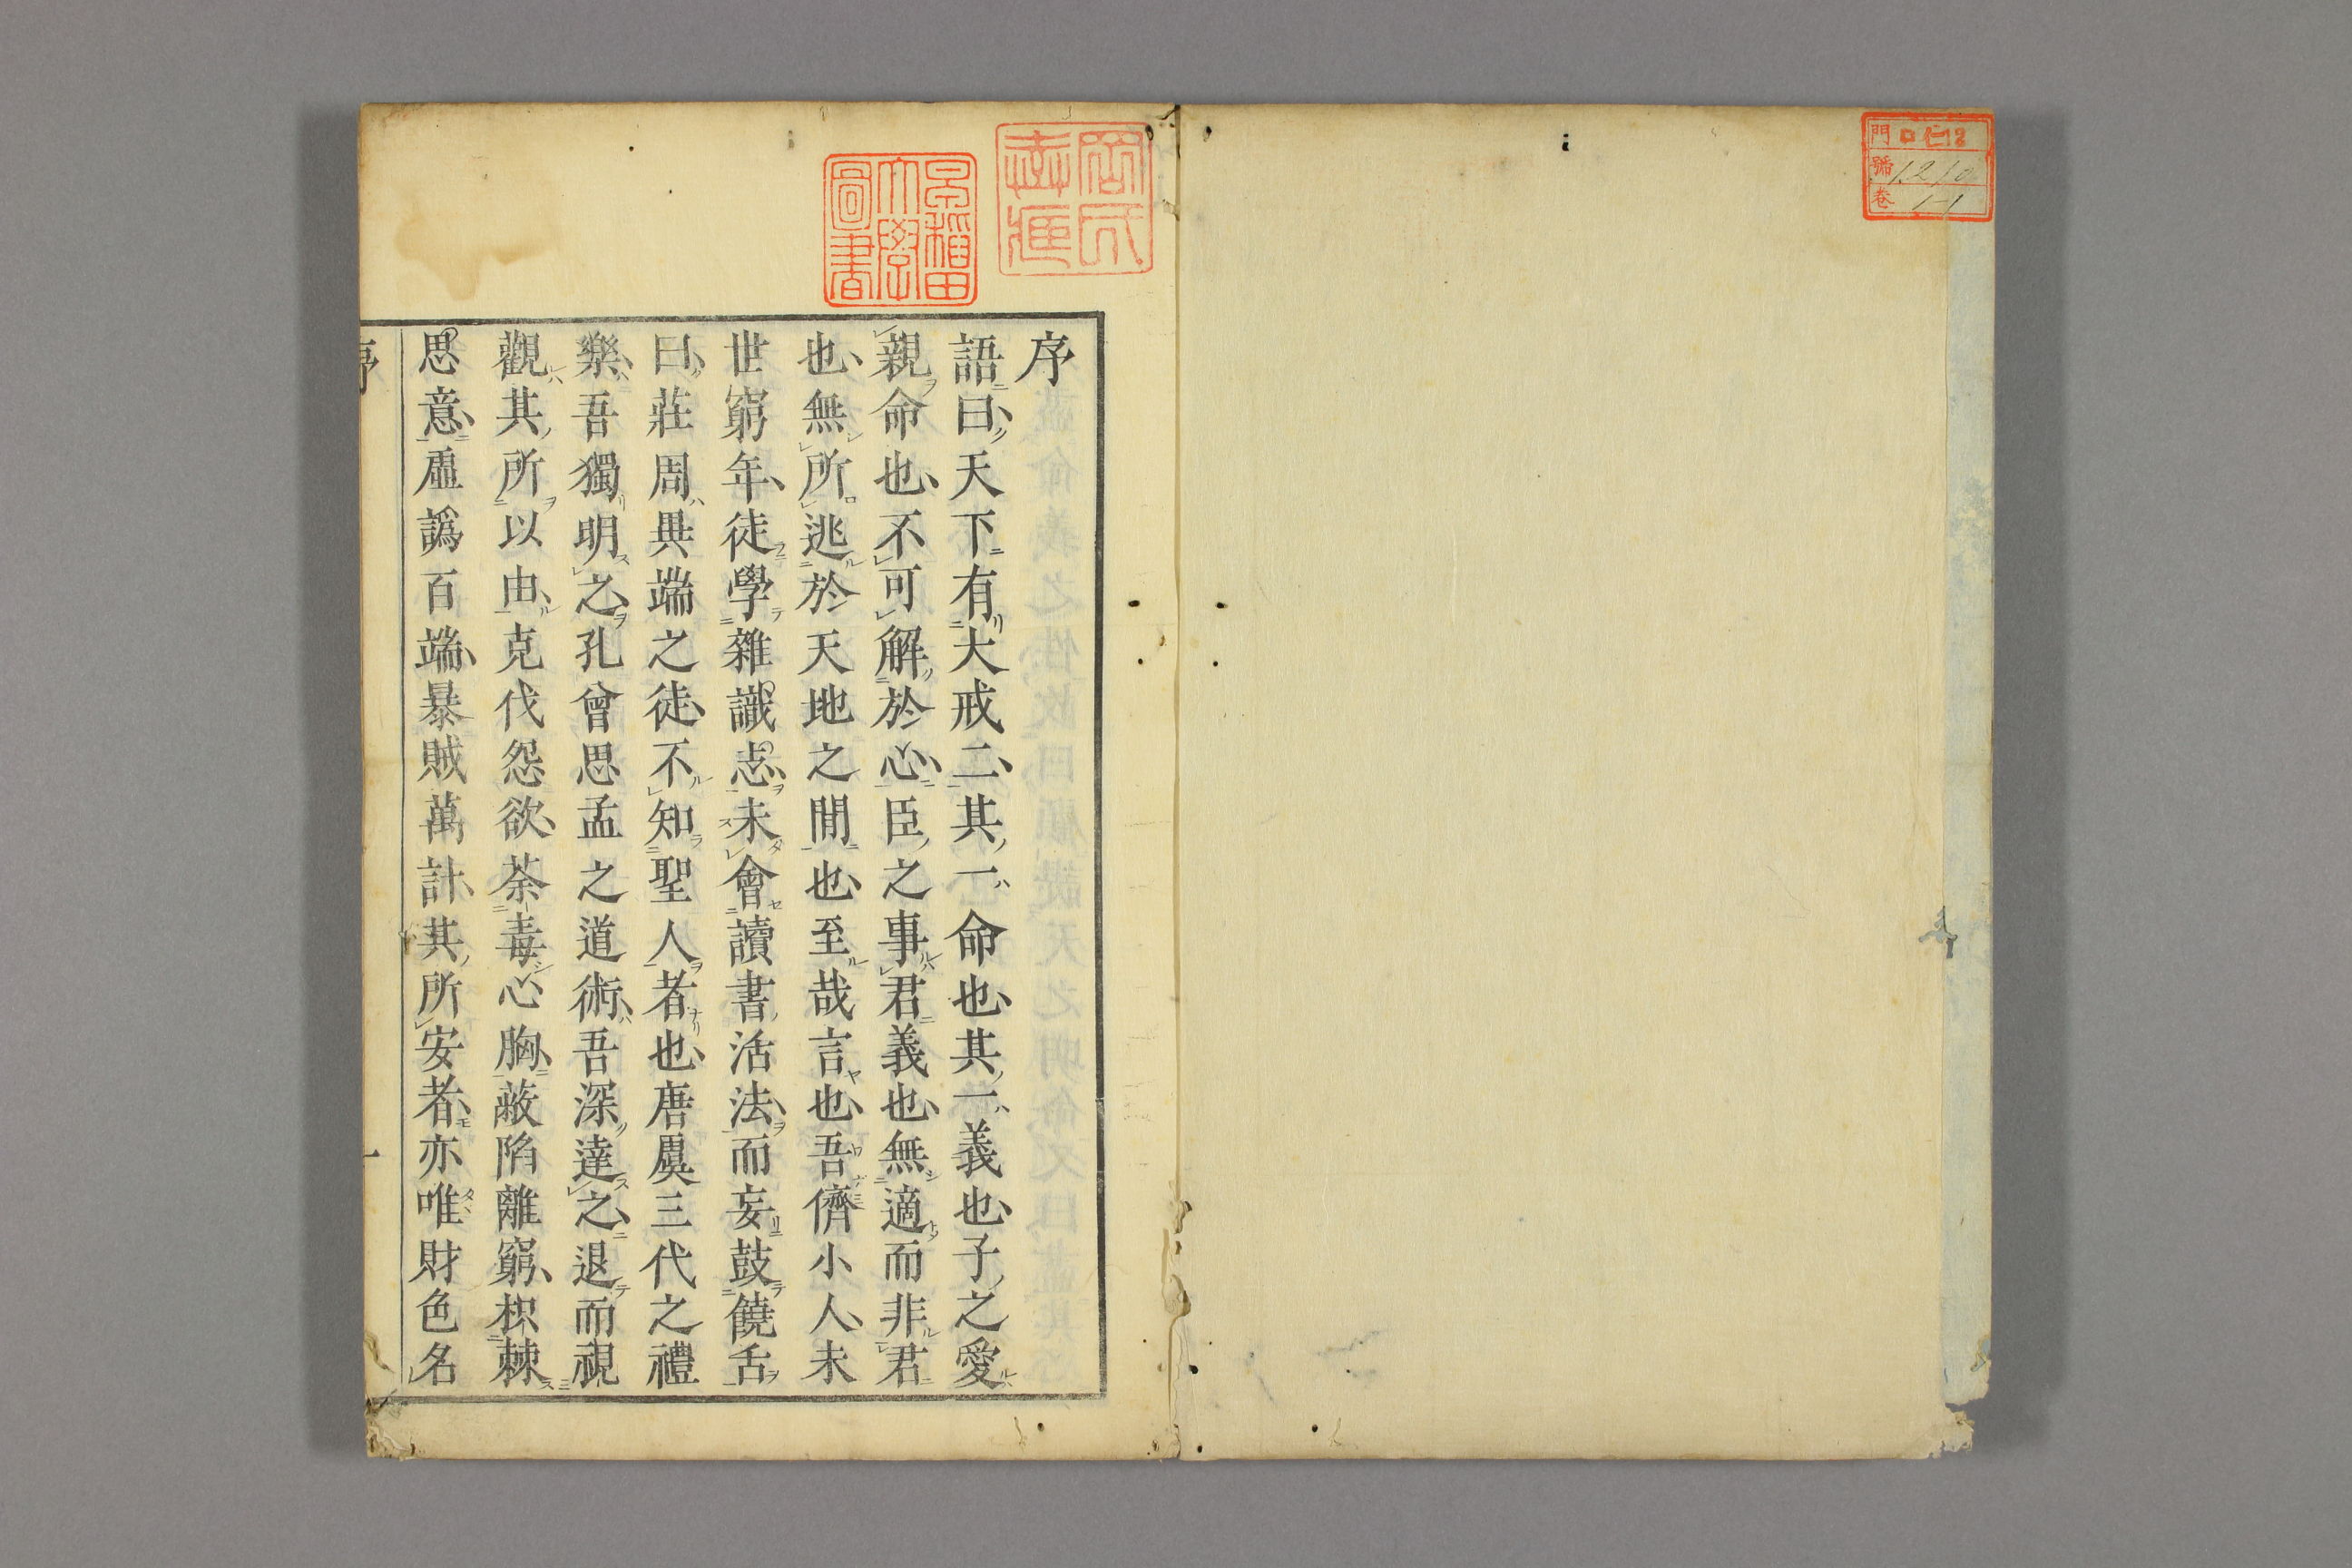 門 ロ仁13
號 1210
卷 1-1
岡氏
圖書
序
語曰天下有大戒二其一命也其一義也子之愛
親命也不可解於心臣之事君義也無適而非君
也無所逃於天地之間也至哉言也吾儕小人未
世窮年徒學雜識志未會讀書活法而妄鼓饒舌
曰莊周異端之徒不知聖人者也唐虞三代之禮
樂吾獨明之孔曾思孟之道術吾深達之退而視
觀其所以由克伐怨欲荼毒心胸蔽陷離窮枳棘
思意虛譌百端暴賊萬計其所安者亦唯財色名
序
一